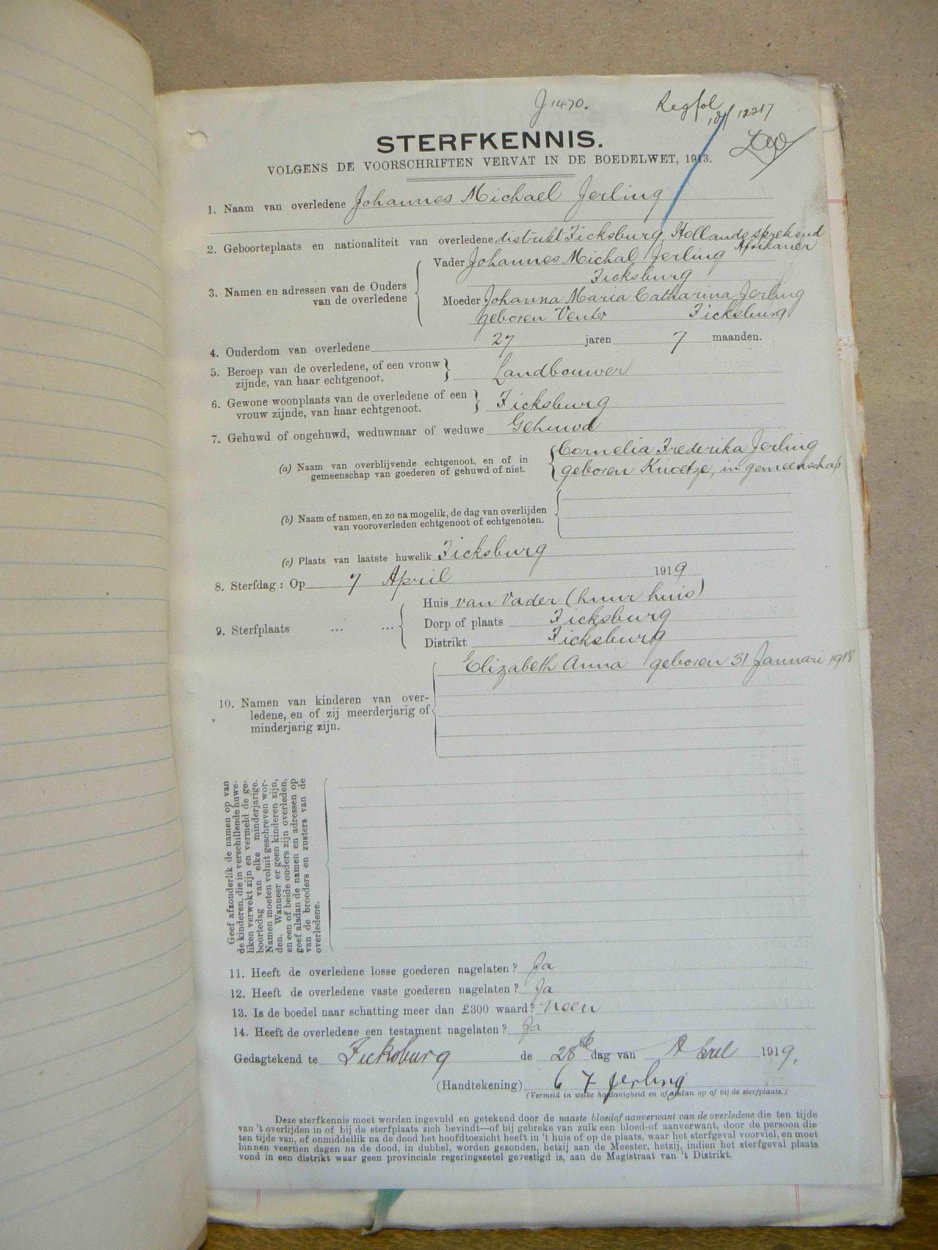 J 1470.
Regfol
STERFKENNIS.
VOLGENS DE VOORSCHRIFTEN VERVAT IN DE BOEDELWET, 1913.
1. Naam van overledene Johannes Michael Jerling
2. Geboorteplaats en nationaliteit van overledene distrikt Ficksburg, Hollands sprekend
Afrikaner
3. Namen en adressen van de Ouders
van de overledene
Vader Johannes Michal Jerling
Ficksburg
Moeder Johanna Maria Catharina Jerling
geboren Venter Ficksburg
4. Ouderdom van overledene 27 jaren 7 maanden.
5. Beroep van de overledene, of een vrouw
zijnde, van haar echtgenoot.
Landbouwer
6. Gewone woonplaats van de overledene of een
vrouw zijnde, van haar echtgenoot.
Ficksburg
7. Gehuwd of ongehuwd, weduwnaar of weduwe Gehuwd
(a) Naam van overblijvende echtgenoot, en of in
gemeenschap van goederen of gehuwd of niet.
Cornelia Frederika Jerling
geboren Knoetze, in gemeenschap
(b) Naam of namen, en zo na mogelik, de dag van overlijden
van vooroverleden echtgenoot of echtgenoten.
(c) Plaats van laatste huwelik Ficksburg
8. Sterfdag : Op 7 April 1919
9. Sterfplaats ... ...
Huis van Vader (huur huis)
Dorp of plaats Ficksburg
Distrikt Ficksburg
10. Namen van kinderen van over-
ledene, en of zij meerderjarig of
minderjarig zijn.
Elizabeth Anna geboren 31 Januari 1918
Geef afzonderlik de namen op van
de kinderen, die in verschillende huwe-
liken verwekt zijn en vermeld de ge-
boortedag van elke minderjarige.
Namen moeten voluit geschreven wor-
den. Wanneer er geen kinderen zijn,
en een of beide ouders zijn overleden,
geef alsdan de namen en adressen op
van de broeders en zusters van de
overledene.
11. Heeft de overledene losse goederen nagelaten? Ja
12. Heeft de overledene vaste goederen nagelaten? Ja
13. Is de boedel naar schatting meer dan £300 waard? neen
14. Heeft de overledene een testament nagelaten? Ja
Gedagtekend te Ficksburg de 28ste dag van April 1919.
(Handtekening) C F Jerling
(Vermeld in welke hoedanigheid en of aldan op of bij de sterfplaats.)
Deze sterfkennis moet worden ingevuld en getekend door de naaste bloedaf aanverwant van de overledene die ten tijde
van 't overlijden in of bij de sterfplaats zich bevindt—of bij gebreke van zulk een bloed-of aanverwant, door de persoon die
ten tijde van, of onmiddellik na de dood het hoofdtoezicht heeft in 't huis of op de plaats, waar het sterfgeval voorviel, en moet
binnen veertien dagen na de dood, in dubbel, worden gezonden, hetzij aan de Meester, hetzij, indien het sterfgeval plaats
vond in een distrikt waar geen provinciale regeringszetel gevestigd is, aan de Magistraat van 't Distrikt.